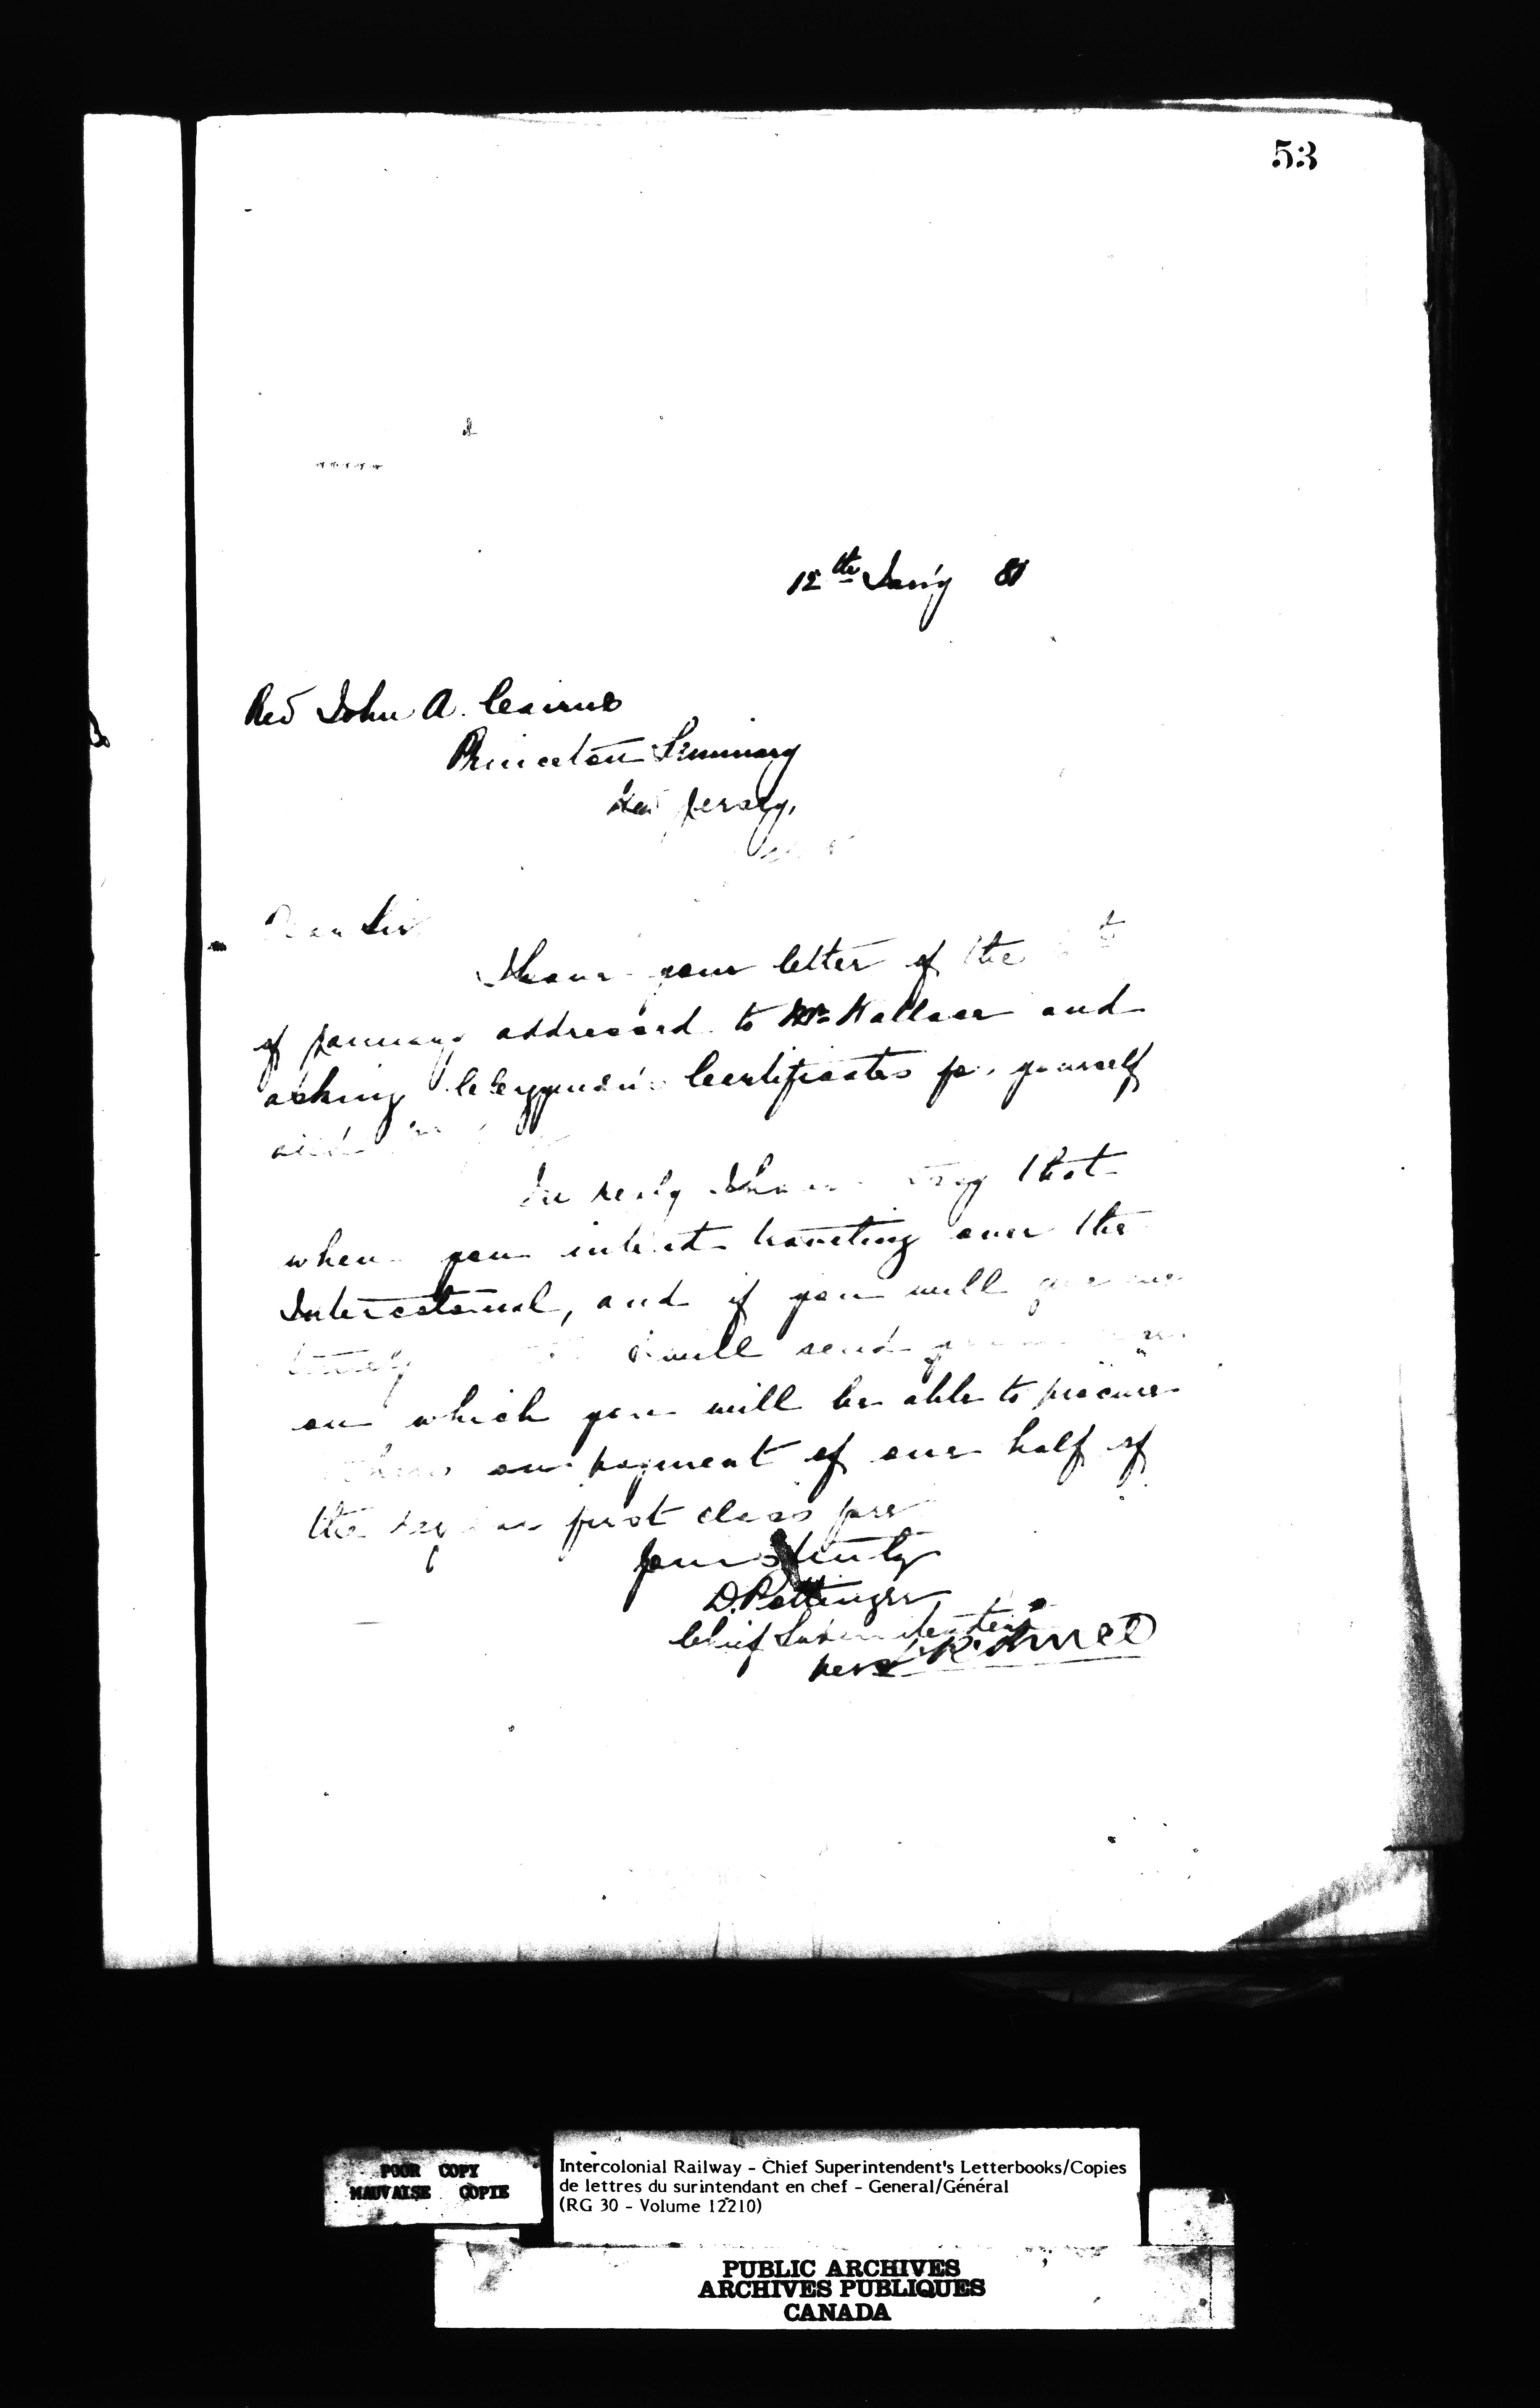 53
12th Jany 81
Rev John A. Cairns
Princeton Seminary
New Jersey,
Dear Sir
I have your letter of the
of January addressed to Mr Wallace and
asking Clergyman's Certificates for yourself
and
In reply I have say that
when you intend traveling over the
Intercolonial, and if you will give me
timely I will send you
on which you will be able to procure
on payment of one half of
the regular first class fare
Yours truly
D. Pottinger
Chief Superintendent
per
POOR COPY
MAUVAISE COPIE
Intercolonial Railway - Chief Superintendent's Letterbooks/Copies
de lettres du surintendant en chef - General/Général
(RG 30 - Volume 12210)
PUBLIC ARCHIVES
ARCHIVES PUBLIQUES
CANADA